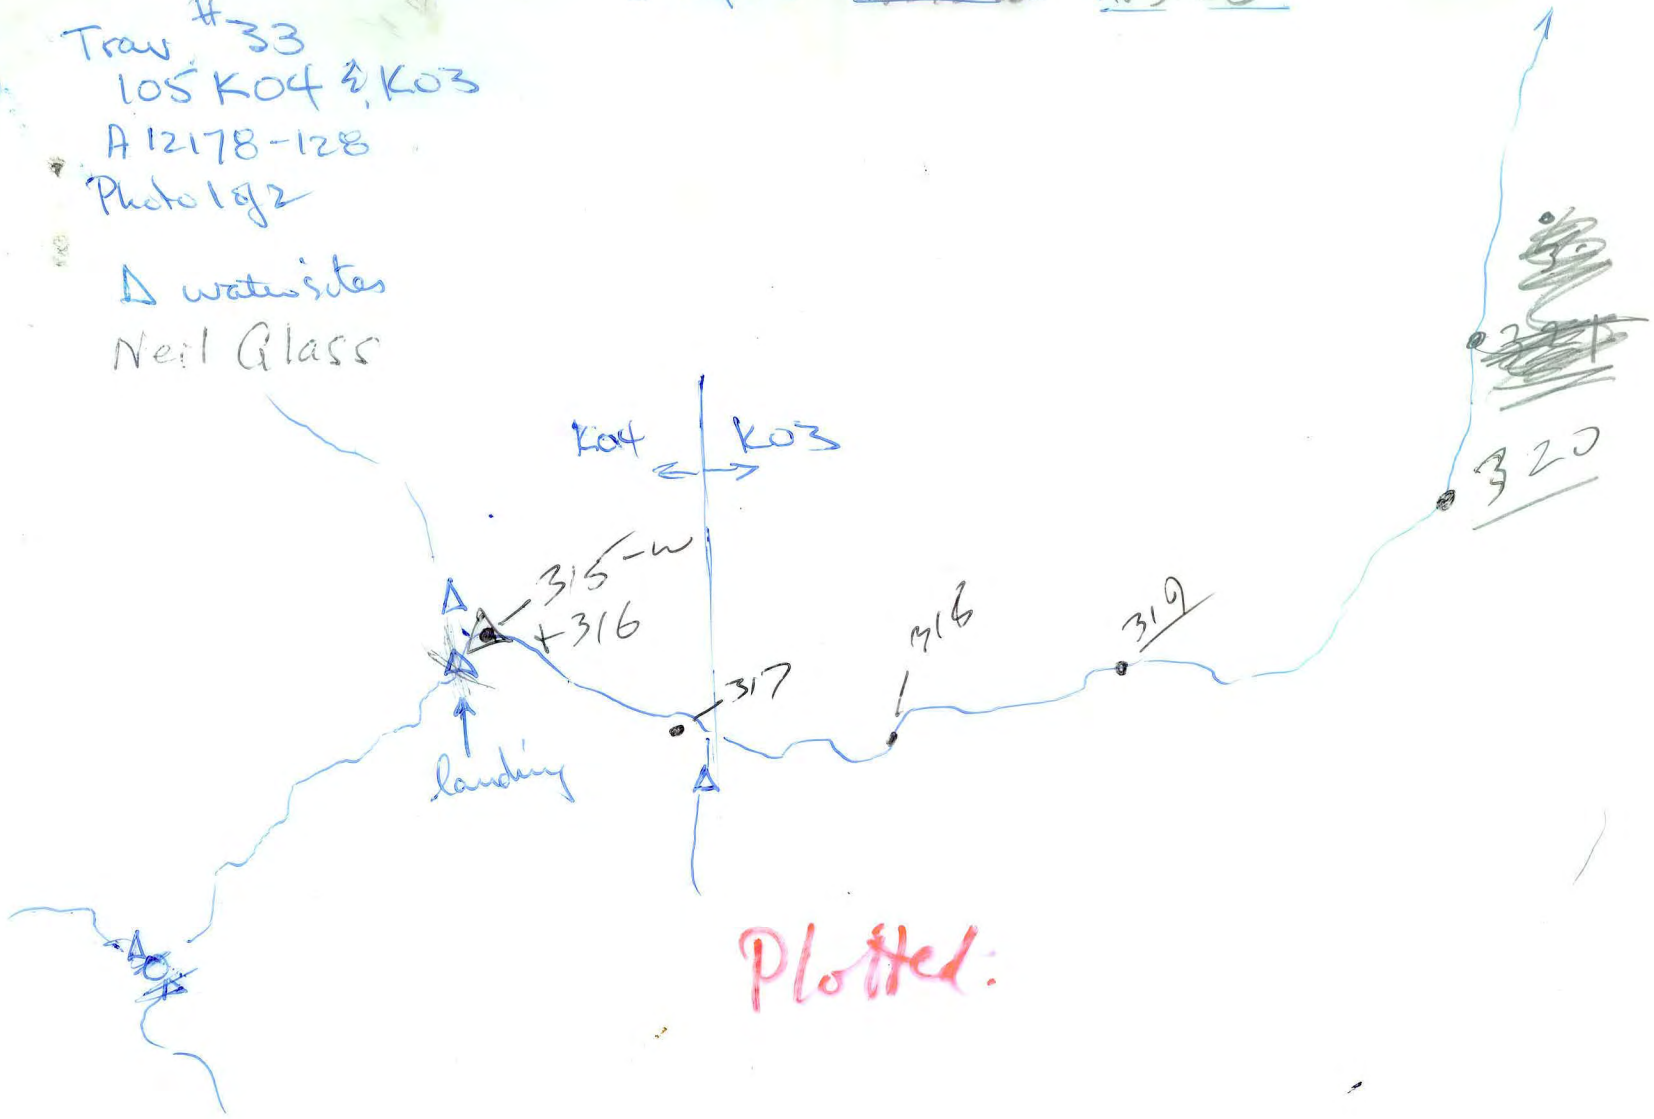 Trav. #33
105 K04 & K03
A 12178-128
Photo 1 of 2
Δ water sites
Neil Glass
K04 K03
315-W
+316
317
318
319
320
landing
Plotted.